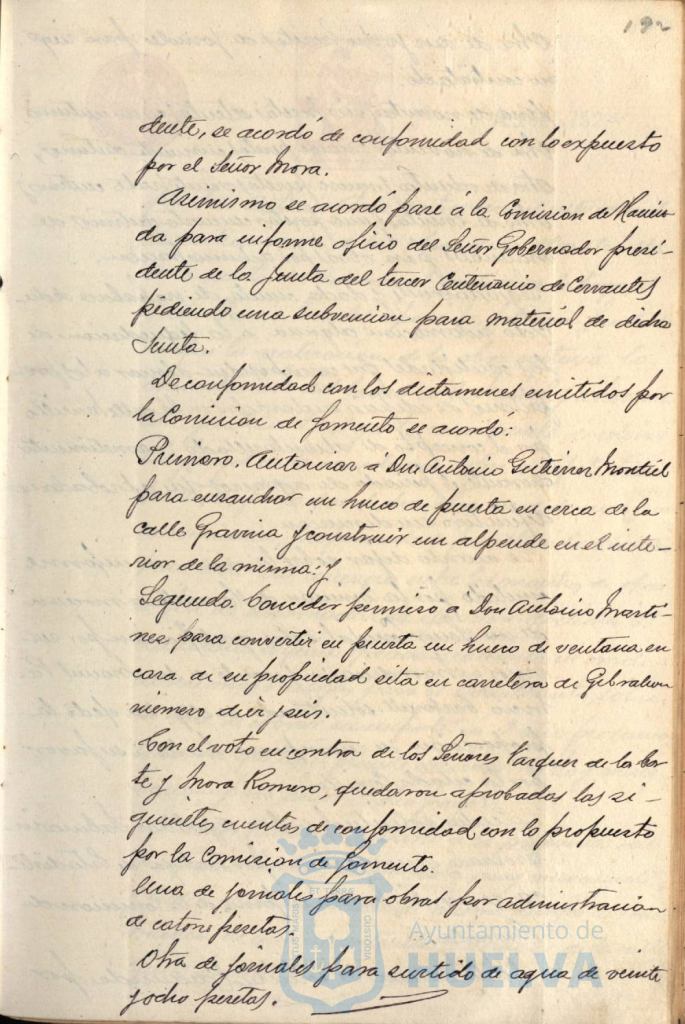 192
dente, se acordó de conformidad con lo expuesto
por el Señor Mora.
Asimismo se acordó pase á la Comision de Hacien
da para informe oficio del Señor Gobernador presi-
dente de la Junta del tercer Centenario de Cervantes
pidiendo una subvencion para material de dicha
Junta.
De conformidad con los dictamenes emitidos por
la Comision de Fomento se acordó:
Primero. Autorizar á Don Antonio Gutiérrez Montiel
para ensanchar un hueco de puerta en cerca de la
calle Gravina y construir un alpende en el inte-
rior de la misma: y
Segundo. Conceder permiso a Don Antonio Martí-
nez para convertir en puerta un hueco de ventana en
casa de su propiedad sita en carretera de Gibraleon
número diez y seis.
Con el voto en contra de los Señores Vazquez de la Cor
te y Mora Romero, quedaron aprobadas las si-
guientes cuentas de conformidad con lo propuesto
por la Comision de Fomento.
Una de jornales para obras por administracion
de catorce pesetas.
Otra de jornales para surtido de agua de veinte
y ocho pesetas.
Ayuntamiento de
HUELVA